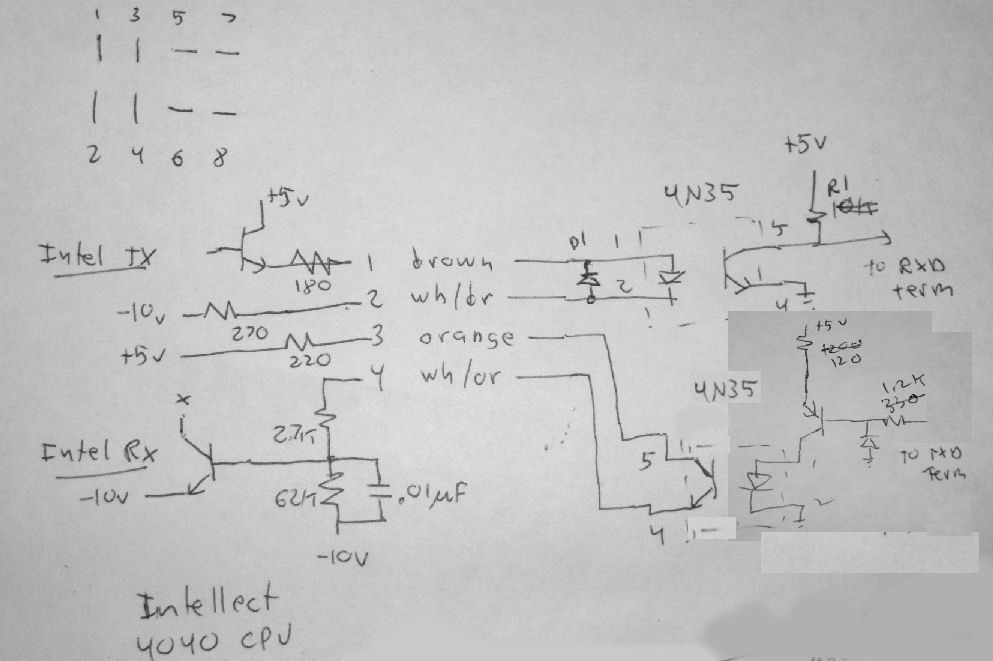 1 3 5 7
2 4 6 8
+5V
Intel TX
180
1 brown
-10V
270
2 wh/br
+5V
220
3 orange
4 wh/or
x
Intel Rx
2.7K
-10V
62K
.01µF
-10V
Intellect
4040 CPU
+5V
4N35
R1
10K
D1
1
5
2
4
TO RXD
term
+5V
1200
120
4N35
1.2K
330
5
TO TXD
Term
1
2
4